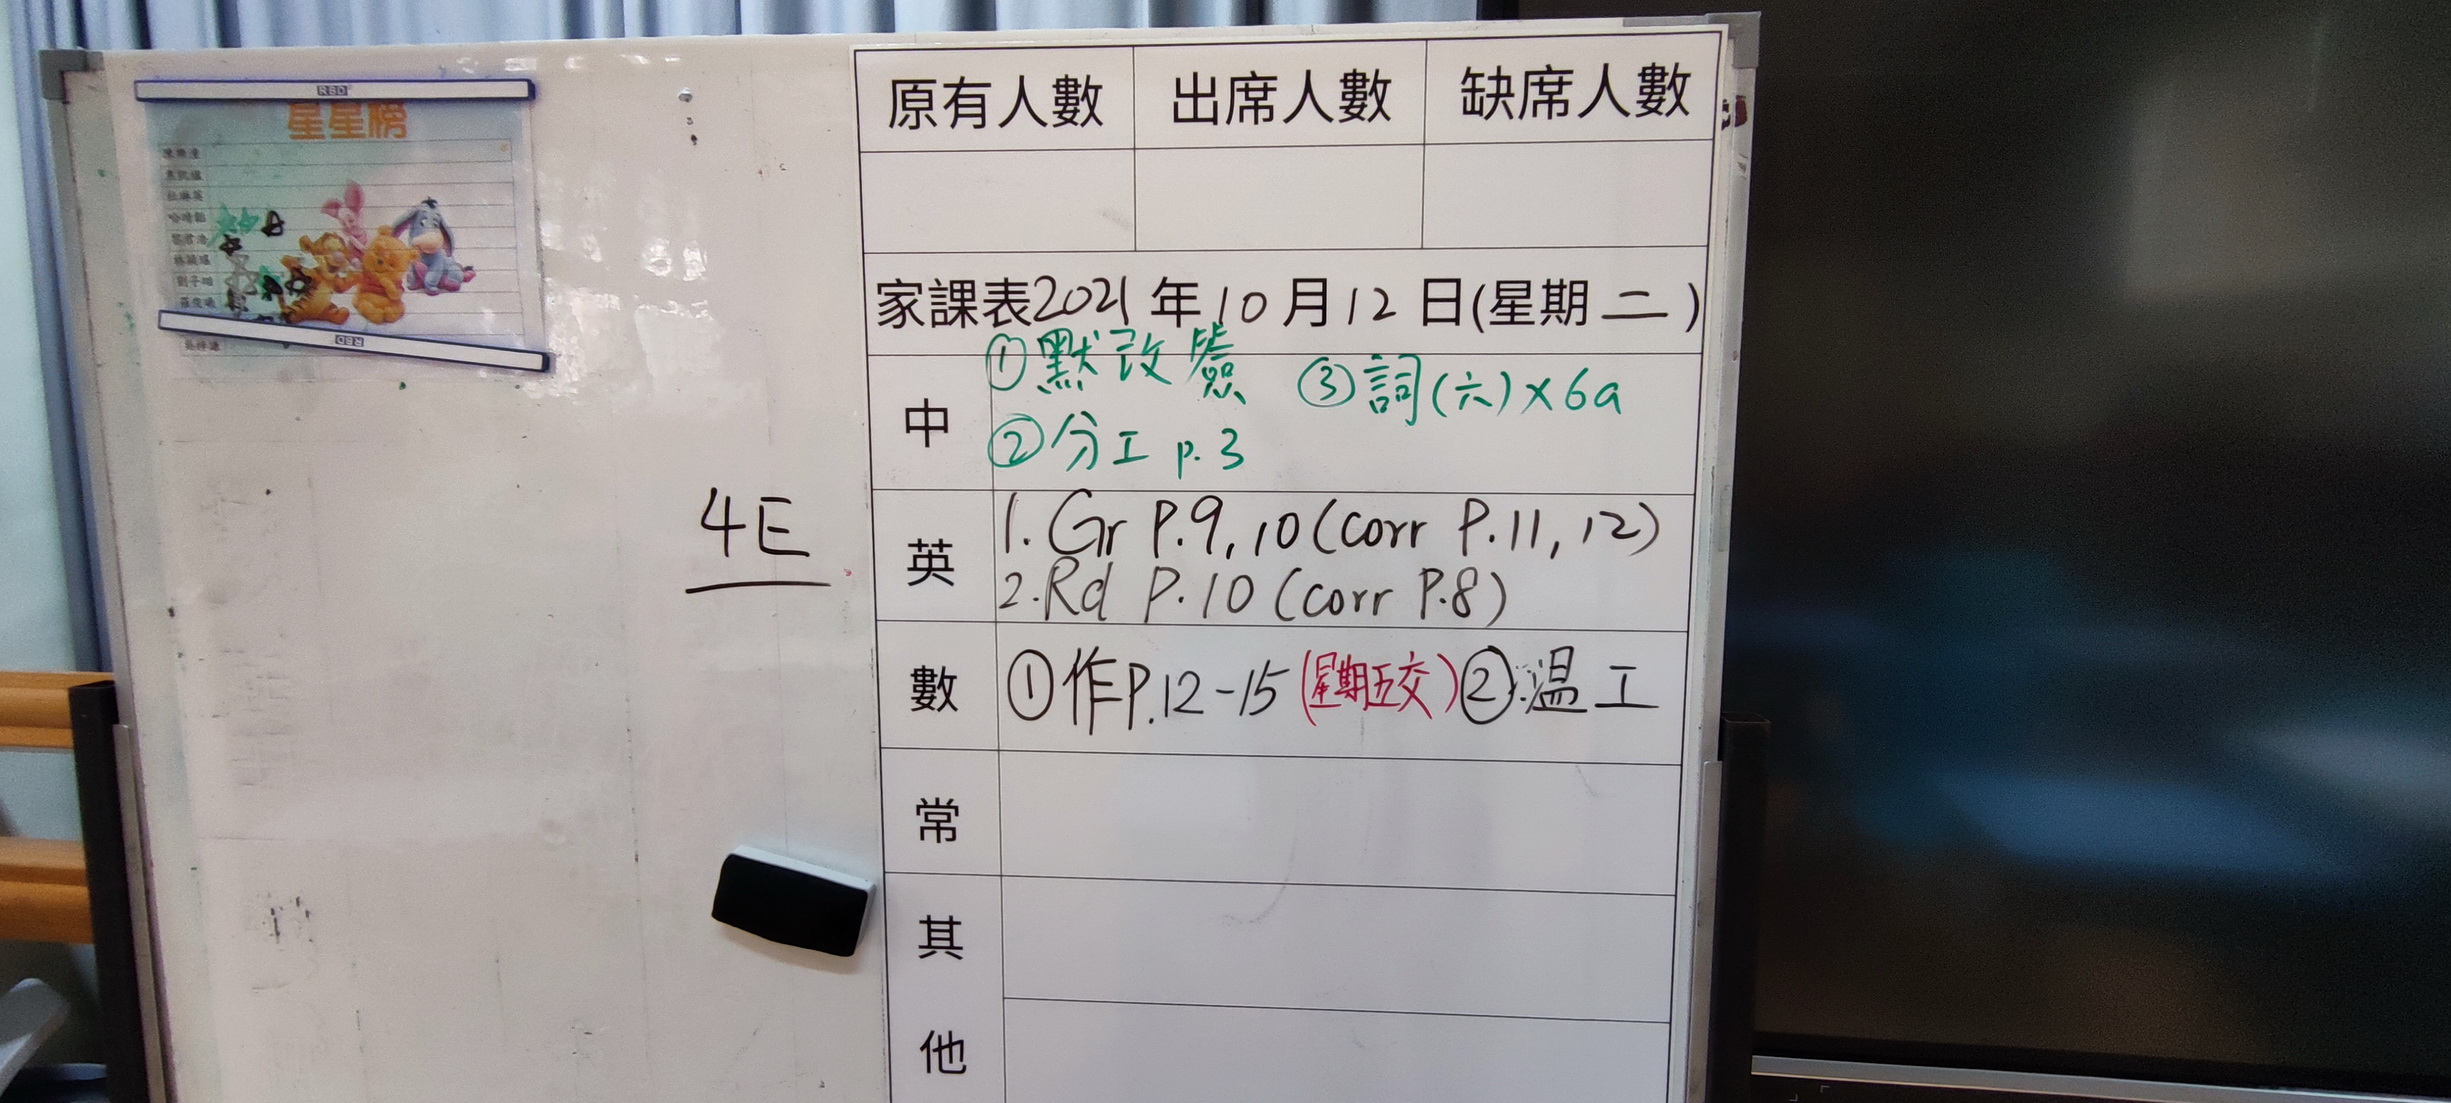 RBD
星星榜
RBD
原有人數 出席人數 缺席人數
家課表2021年10月12日(星期二)
中
①默改簽 ③詞(六)×6a
②分工 p.3
4E
英
1. Gr P.9,10 (corr P.11,12)
2. Rd P.10 (corr P.8)
數 ①作P.12-15 (星期五交) ② 温工
常
其
他